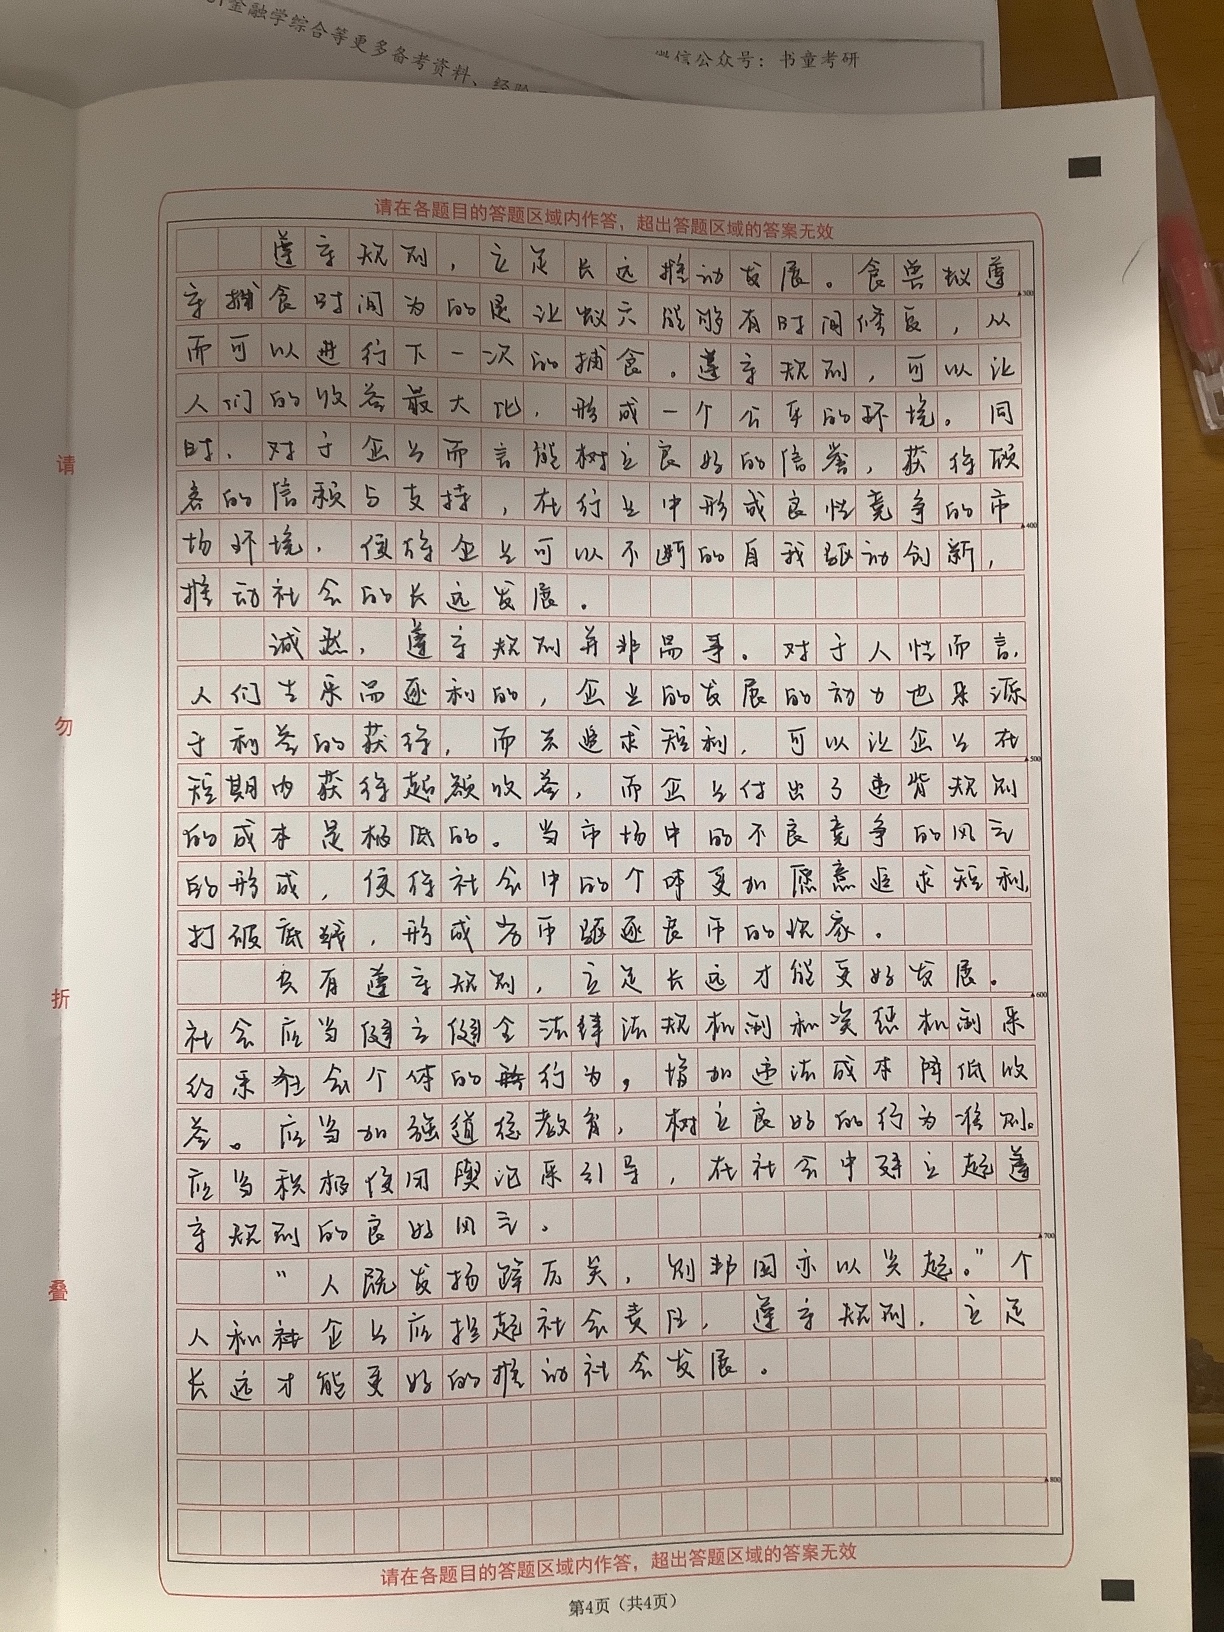 金融学综合等更多备考资料、经验
微信公众号：书童考研
请在各题目的答题区域内作答，超出答题区域的答案无效
遵守规则，立足长远推动发展。食兽蚁遵
守捕食时间为的是让蚁穴能够有时间修复，从
而可以进行下一次的捕食。遵守规则，可以让
人们的收益最大化，形成一个公平的环境。同
时，对于企业而言能树立良好的信誉，获得顾
客的信赖与支持，在行业中形成良性竞争的市
场环境，使得企业可以不断的自我驱动创新，
推动社会的长远发展。
诚然，遵守规则并非易事。对于人性而言，
人们生来而逐利的，企业的发展的动力也来源
于利益的获得，而去追求短利，可以让企业在
短期内获得超额收益，而企业付出了违背规则
的成本是极低的。当市场中的不良竞争的风气
的形成，使得社会中的个体更加愿意追求短利，
打破底线，形成劣币驱逐良币的现象。
只有遵守规则，立足长远才能更好发展。
社会应当健立健全法律法规机制和奖惩机制来
约束社会个体的行为，增加违法成本降低收
益。应当加强道德教育，树立良好的行为准则。
应当积极使用舆论来引导，在社会中建立起遵
守规则的良好风气。
“人既发扬踔厉矣，则邦国亦以兴起。”个
人和企业应担起社会责任，遵守规则，立足
长远才能更好的推动社会发展。
300
400
500
600
700
800
请
勿
折
叠
请在各题目的答题区域内作答，超出答题区域的答案无效
第4页（共4页）